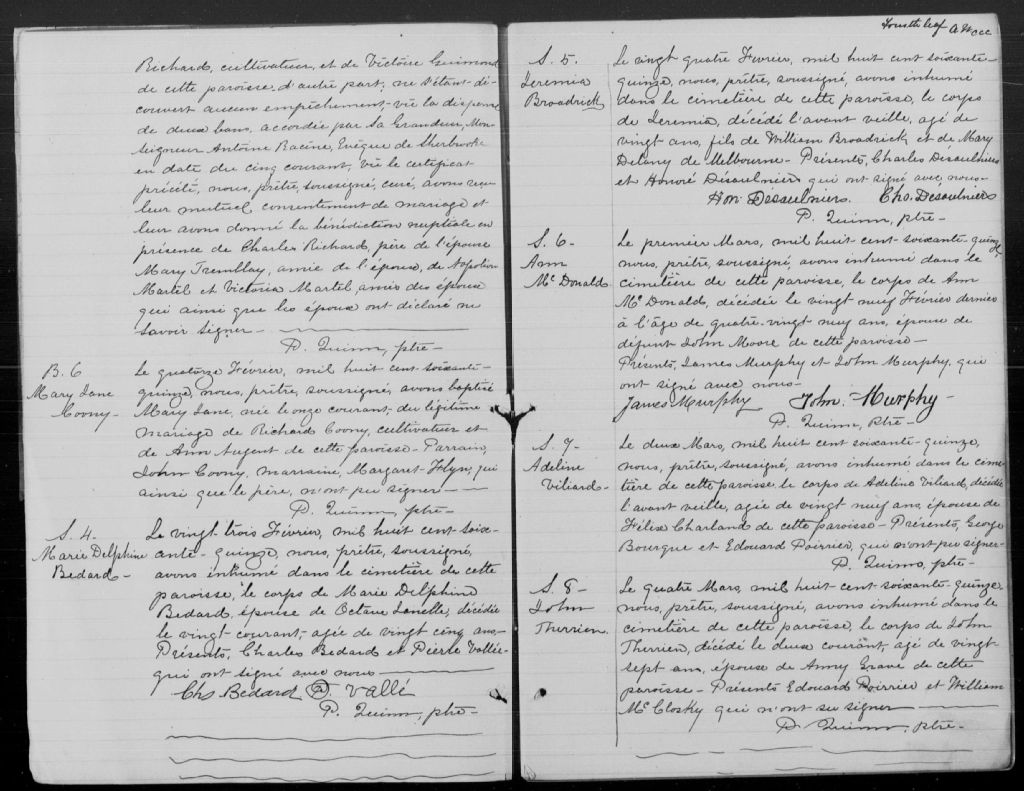 Richard, cultivateur, et de Victoire Guimond
de cette paroisse, d'autre part; ne s'étant dé-
couvert aucun empêchement, vu la dispense
de deux bans, accordée par Sa Grandeur, Mon-
seigneur Antoine Racine, Evêque de Sherbrooke
en date du cinq courant, vu le certificat
précité, nous, prêtre, soussigné, curé, avons reçu
leur mutuel consentement de mariage et
leur avons donné la bénédiction nuptiale en
présence de Charles Richard, père de l'épouse
Mary Tremblay, amie de l'épouse, de Napoléon
Martel et Victoria Martel amis des époux
qui ainsi que les époux ont déclaré ne
savoir signer -
P. Quinn, ptre -
B. 6
Mary Jane
Coony -
Le quatorze Février, mil huit cent soixante-
quinze, nous, prêtre, soussigné, avons baptisé
Mary Jane, née le onze courant, du légitime
mariage de Richard Coony, cultivateur et
de Ann Nugent de cette paroisse - Parrain,
John Coony, marraine, Margaret Flyn, qui
ainsi que le père, n'ont pu signer -
P. Quinn, ptre -
S. 4.
Marie Delphine
Bedard -
Le vingt trois Février, mil huit cent soix-
ante-quinze, nous, prêtre, soussigné,
avons inhumé dans le cimetière de cette
paroisse, le corps de Marie Delphine
Bedard, épouse de Octave decédée
le vingt courant, agée de vingt cinq ans.
Présents, Charles Bedard et Pierre Vallée
qui ont signé avec nous -
Chs Bedard P. Vallé
P. Quinn, ptre -
Fourth leaf
S. 5.
Jeremia
Broadrick
Le vingt quatre Février, mil huit cent soixante-
quinze, nous, prêtre, soussigné, avons inhumé
dans le cimetière de cette paroisse, le corps
de Jeremia, décédé l'avant veille, agé de
vingt ans, fils de William Broadrick et de Mary
Delany de Melbourne - Présents, Charles Désaulniers
et Honoré Désaulniers qui ont signé avec nous -
Hon. Désaulniers. Chs. Désaulniers
P. Quinn, ptre -
S. 6 -
Ann
McDonald
Le premier Mars, mil huit cent soixante-quinze,
nous, prêtre, soussigné, avons inhumé dans le
cimetière de cette paroisse, le corps de Ann
McDonald, décédée le vingt neuf Février dernier
à l'âge de quatre-vingt neuf ans, épouse de
défunt John Moore de cette paroisse -
Présents, James Murphy et John Murphy, qui
ont signé avec nous -
James Murphy John. Murphy -
P. Quinn, ptre -
S. 7 -
Adeline
Viliard -
Le deux Mars, mil huit cent soixante-quinze,
nous, prêtre, soussigné, avons inhumé dans le cime-
tière de cette paroisse, le corps de Adeline Viliard, décédée
l'avant veille, agée de vingt neuf ans, épouse de
Félix Charland de cette paroisse - Présents, George
Bourque et Edouard Poirrier, qui n'ont pu signer -
P. Quinn, ptre -
S. 8 -
John
Therrien.
Le quatre Mars, mil huit cent soixante-quinze,
nous, prêtre, soussigné, avons inhumé dans le
cimetière de cette paroisse, le corps de John
Therrien, décédé le deux courant, agé de vingt-
sept ans, épouse de Anny Grave de cette
paroisse - Présents Edouard Poirrier et William
McClosky qui n'ont su signer -
P. Quinn, ptre -